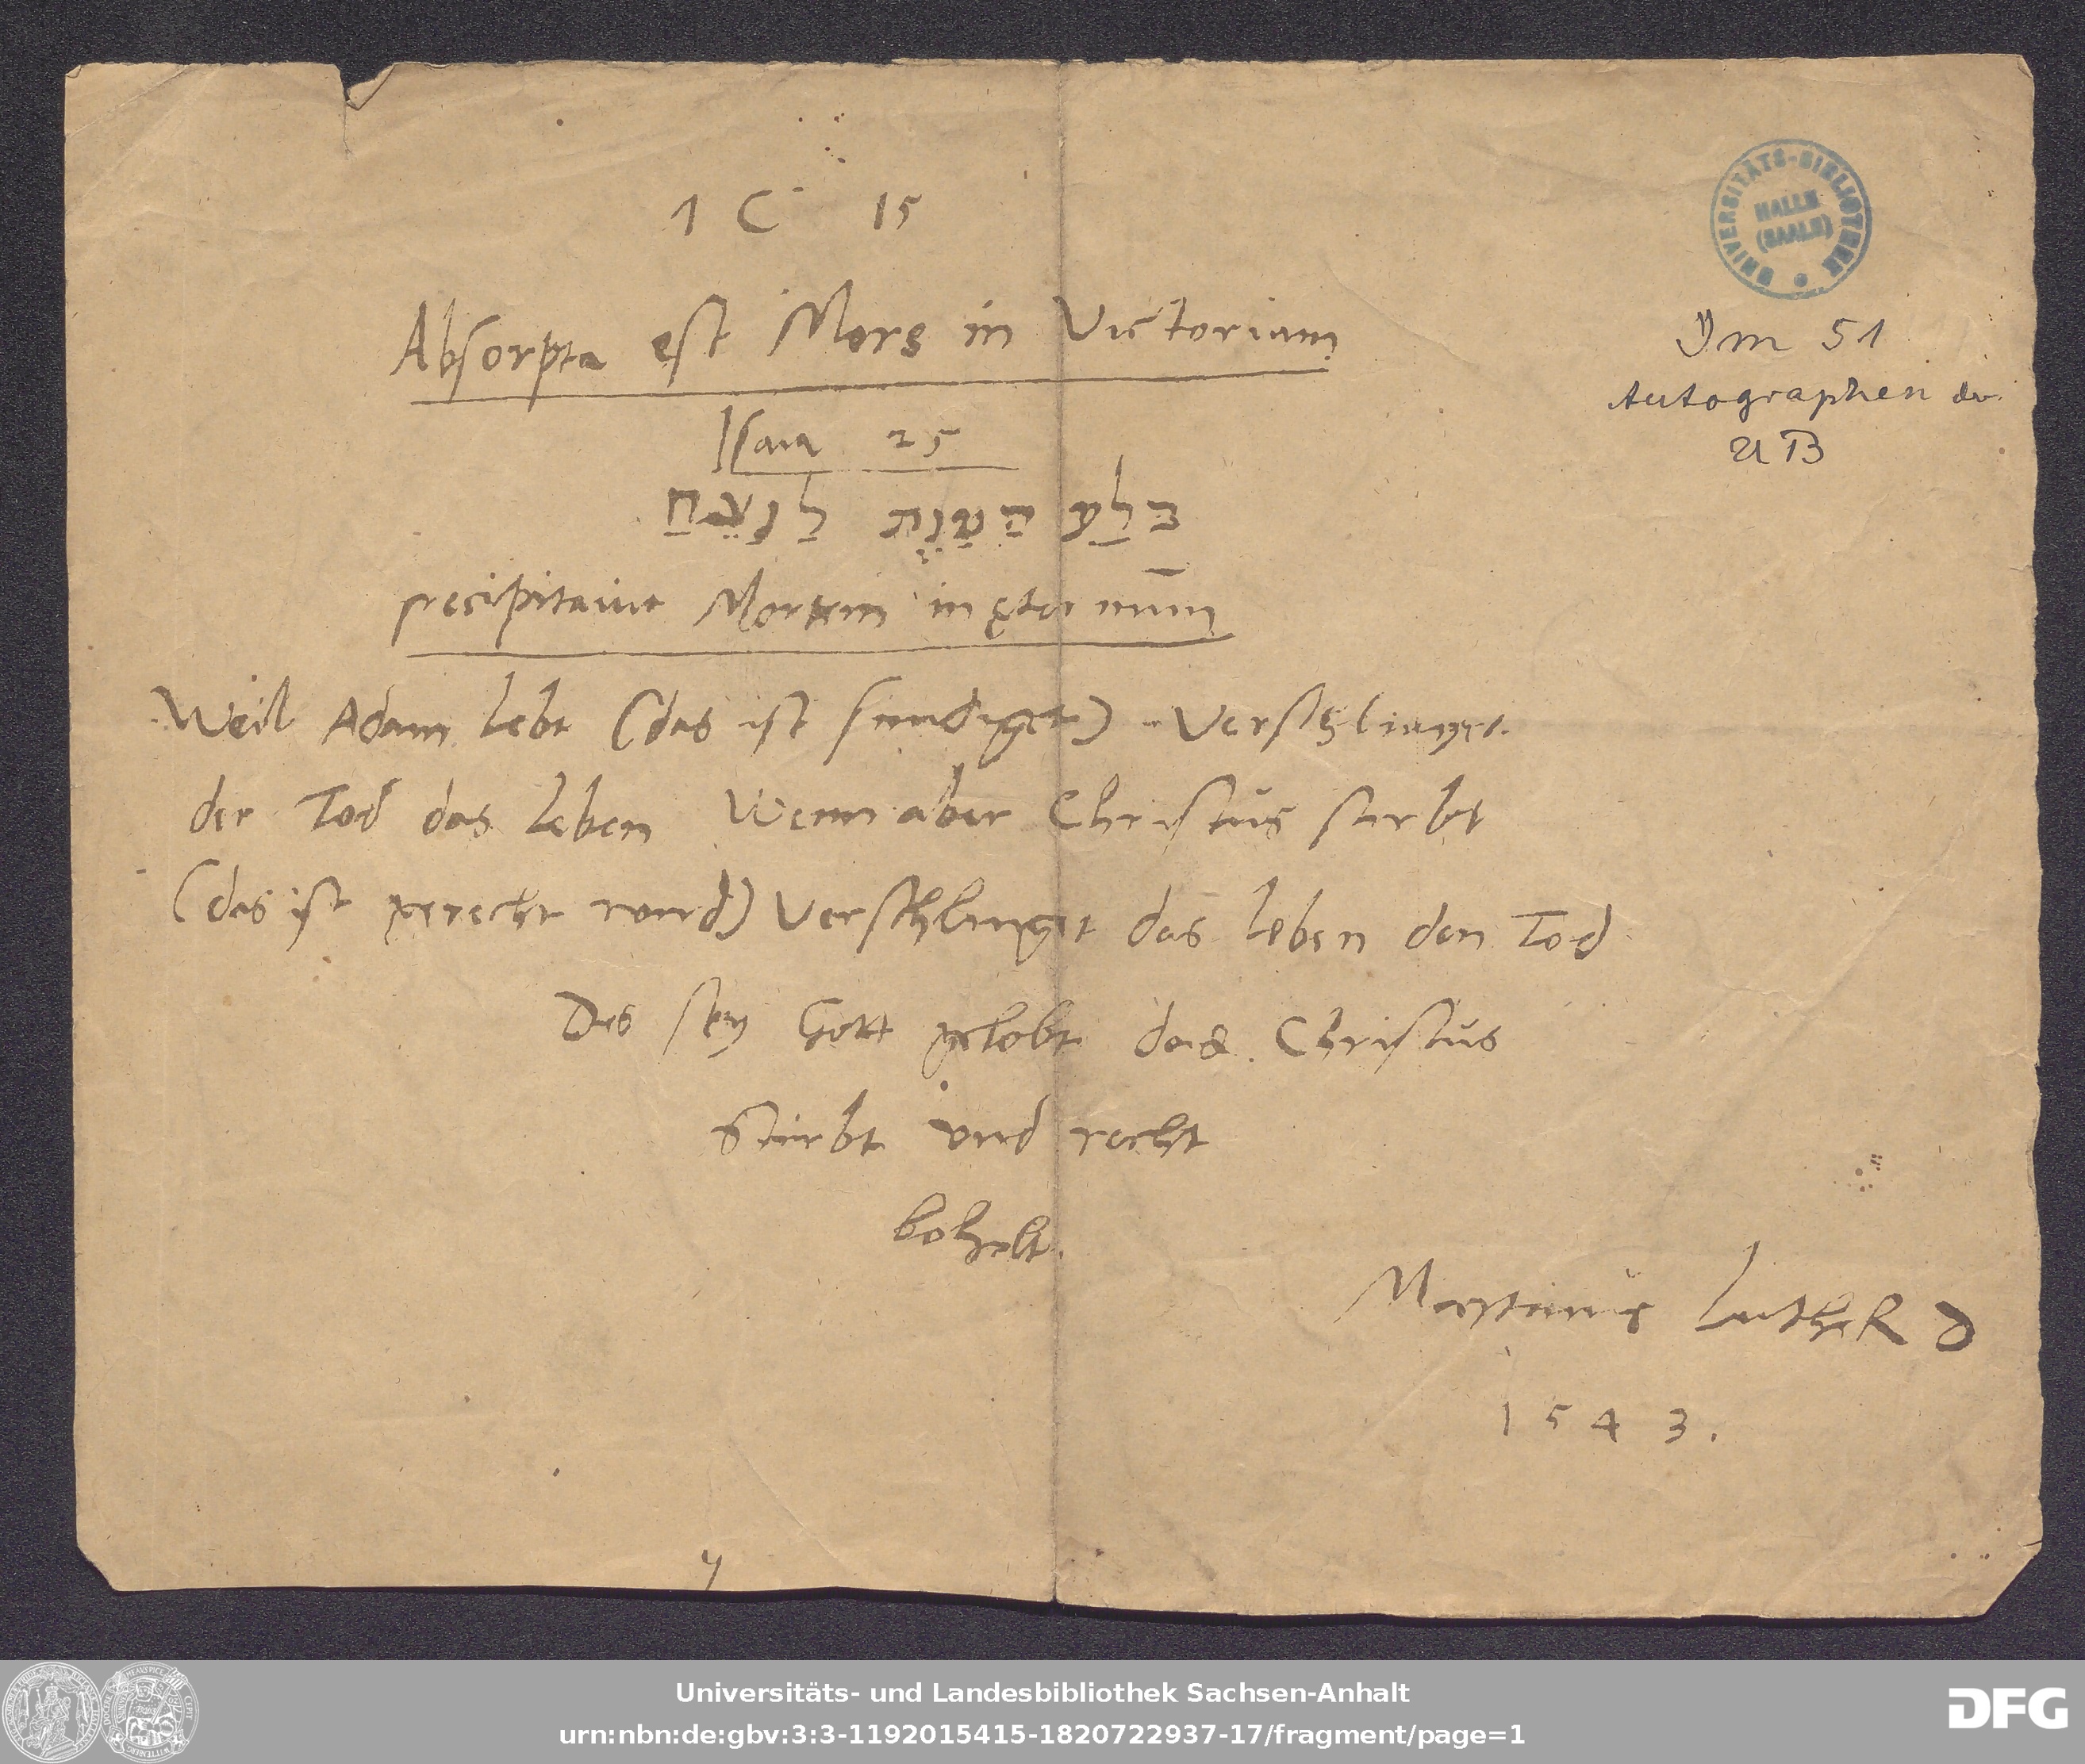 1 C 15
UNIVERSITÄTS-BIBLIOTHEK
HALLE
(SAALE)
Absorpta est Mors in Victoriam
Ym 51
Autographen der
UB
Isaia 25
בִּלַּע הַמָּוֶת לָנֶצַח
precipitavit Mortem in ęternum̄
Weil Adam lebt (das ist sundiget) Verschlinget
der Tod das Leben Wenn aber Christus stirbt
(das ist gerecht wird) Verschlinget das Leben den Tod
Des sey Gott gelobt das Christus
Stirbt vnd recht
behelt.
Martinus LutheR D
1543.
Universitäts- und Landesbibliothek Sachsen-Anhalt
urn:nbn:de:gbv:3:3-1192015415-1820722937-17/fragment/page=1
DFG